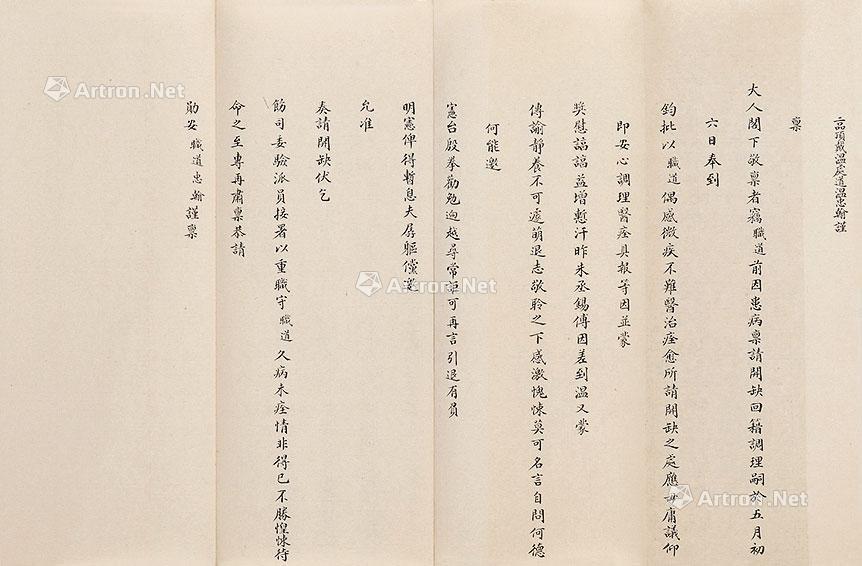 二品頂戴溫處道溫忠翰謹
稟
大人閣下敬稟者竊職道前因患病稟請開缺回籍調理嗣於五月初
六日奉到
鈞批以職道偶感微疾不難醫治痊愈所請開缺之處應毋庸議仰
即安心調理醫痊具報等因並蒙
獎慰諄諄益增慙汗昨朱丞錫傳因差到溫又蒙
傳諭靜養不可遽萌退志敬聆之下感激愧悚莫可名言自問何德
何能邀
憲台殷拳勸勉逈越尋常詎可再言引退有負
明憲俾得暫息夫孱軀儻邀
允准
奏請開缺伏乞
飭司委驗派員接署以重職守職道久病未痊情非得已不勝惶悚待
命之至專再肅稟恭請
勛安職道忠翰謹稟
Artron.Net
Artron.Net
Artron.Net